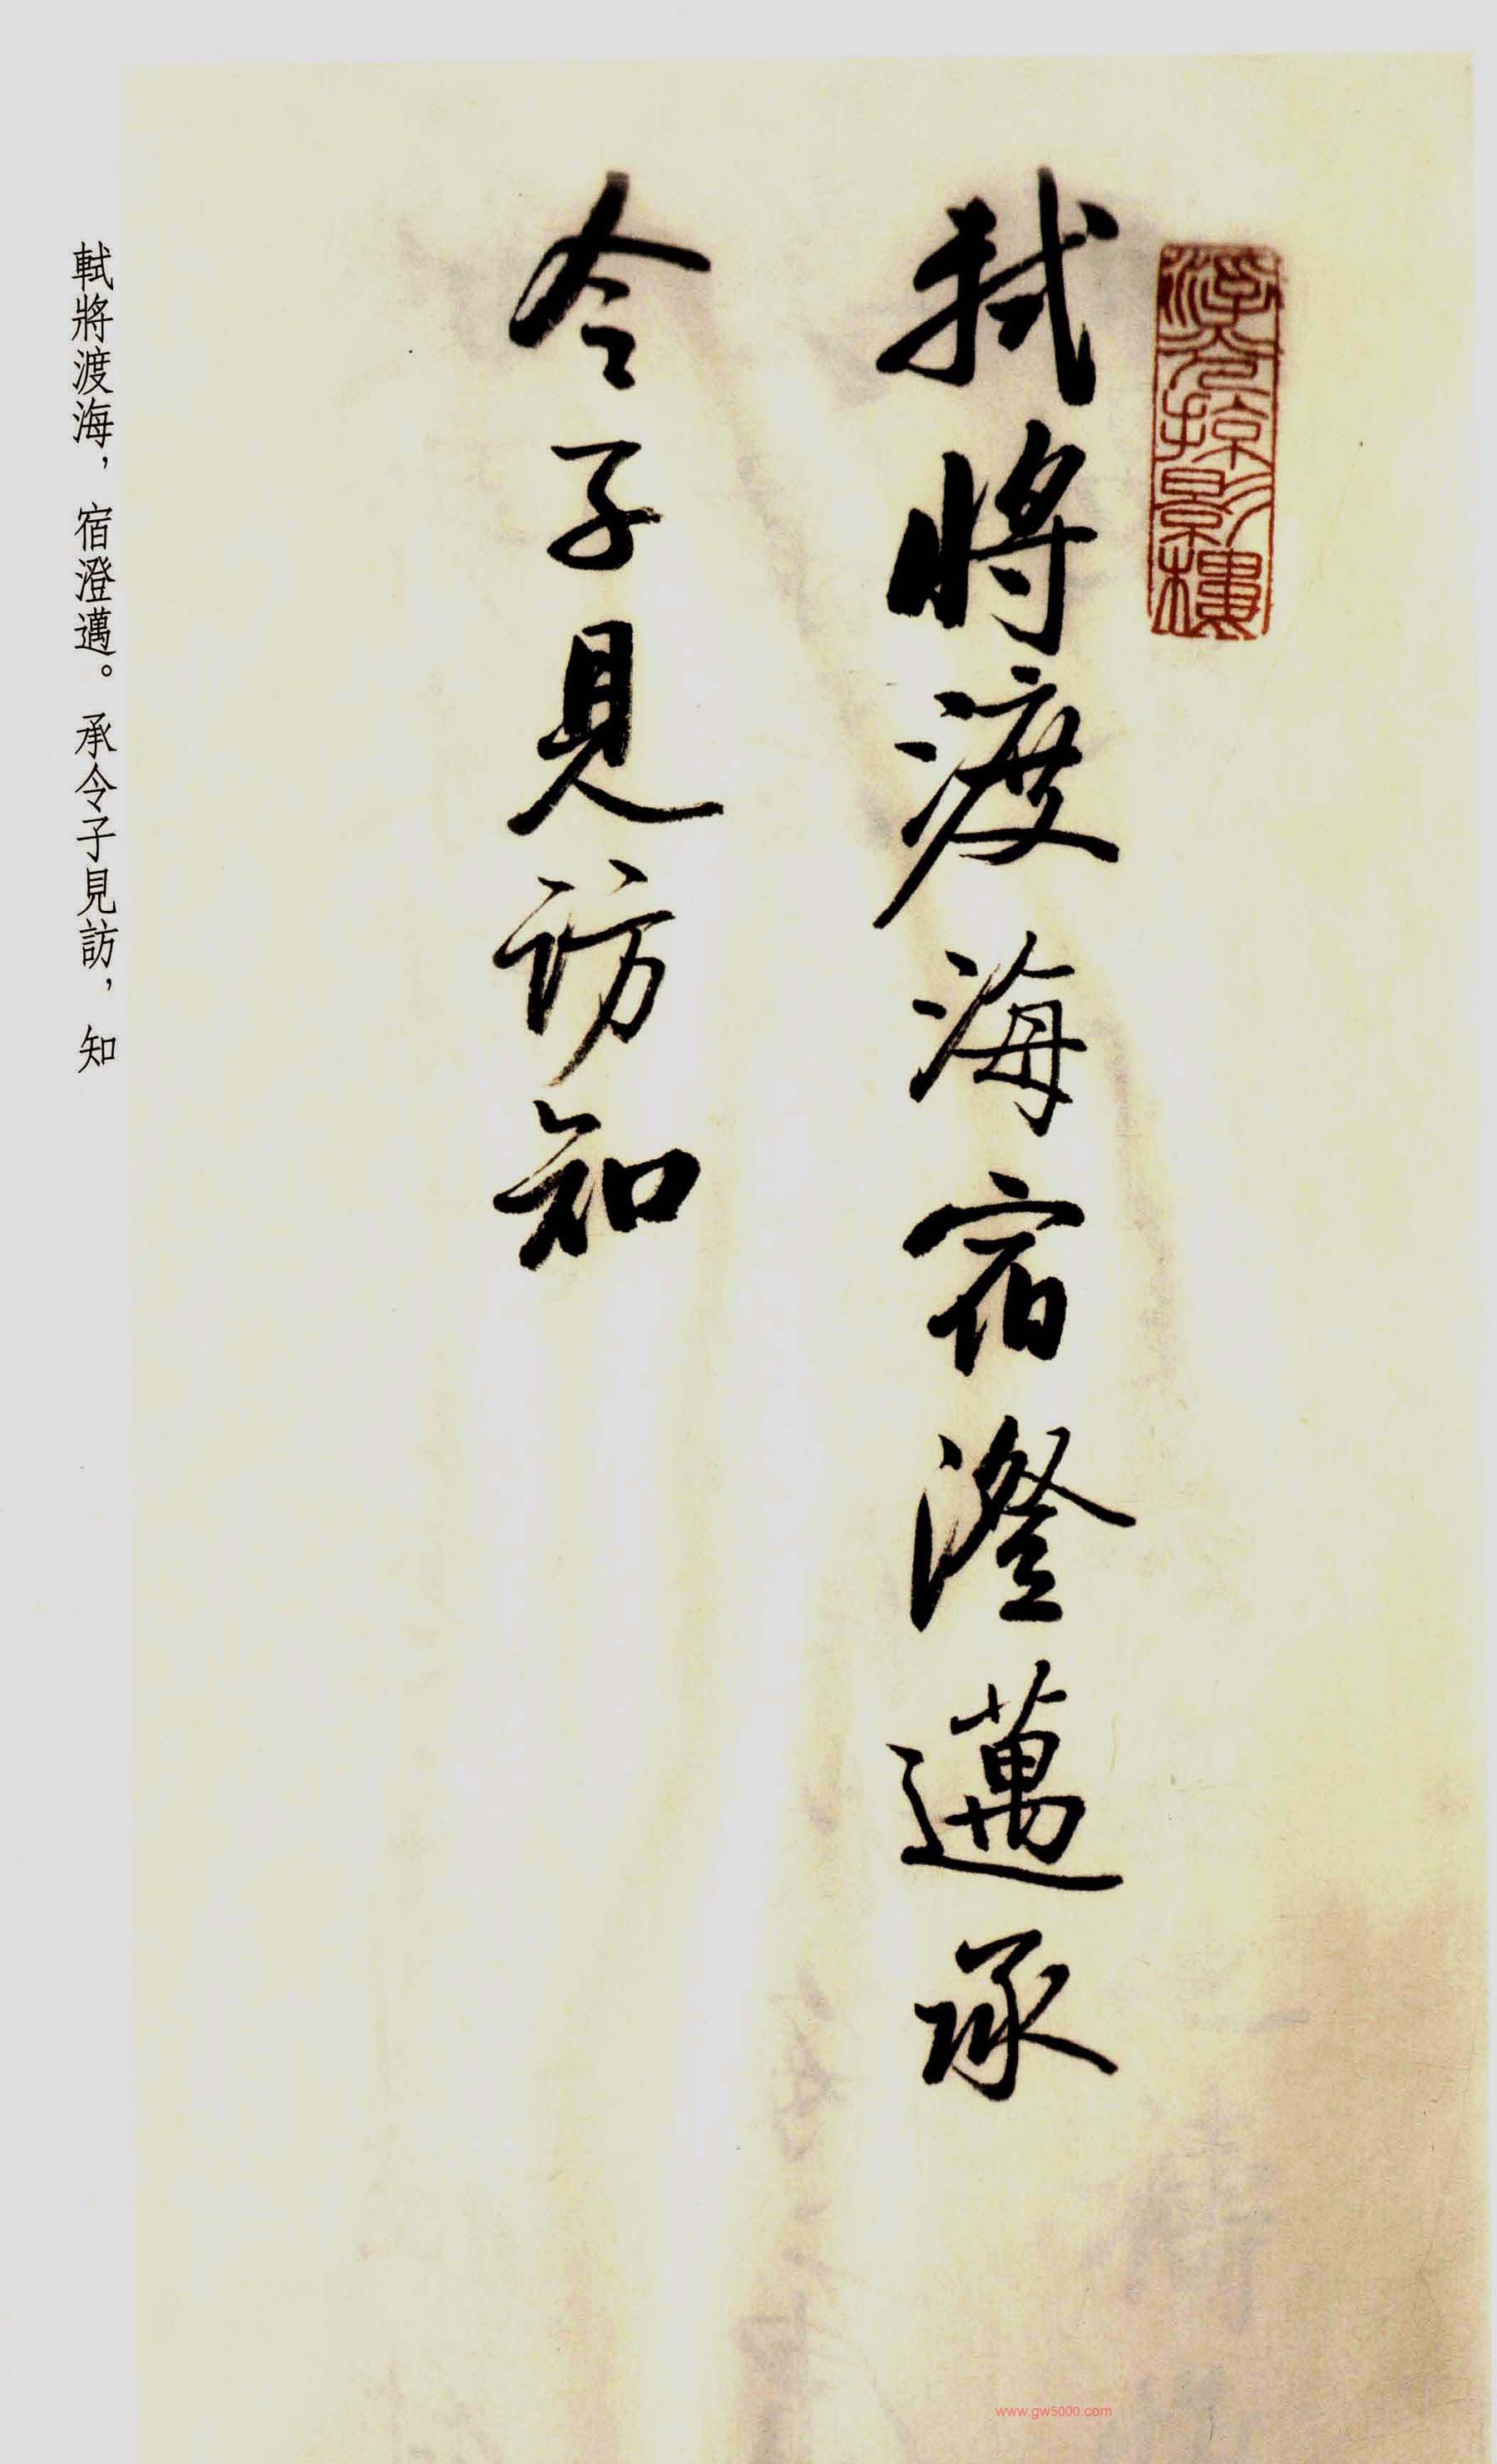 軾將渡海宿澄邁承
令子見訪知
軾將渡海，宿澄邁。承令子見訪，知
www.gw5000.com